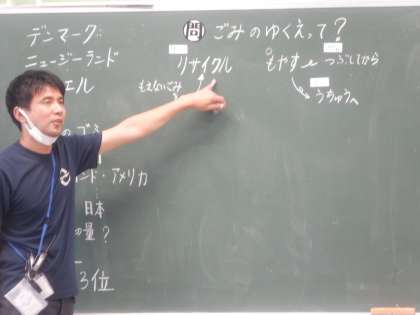 問 ごみのゆくえって?
デンマーク
ニュージーランド
エル
リサイクル
もえないごみ
もやす
つぶしてから
うちゅうへ
ンド・アメリカ
日本
の量?
3位